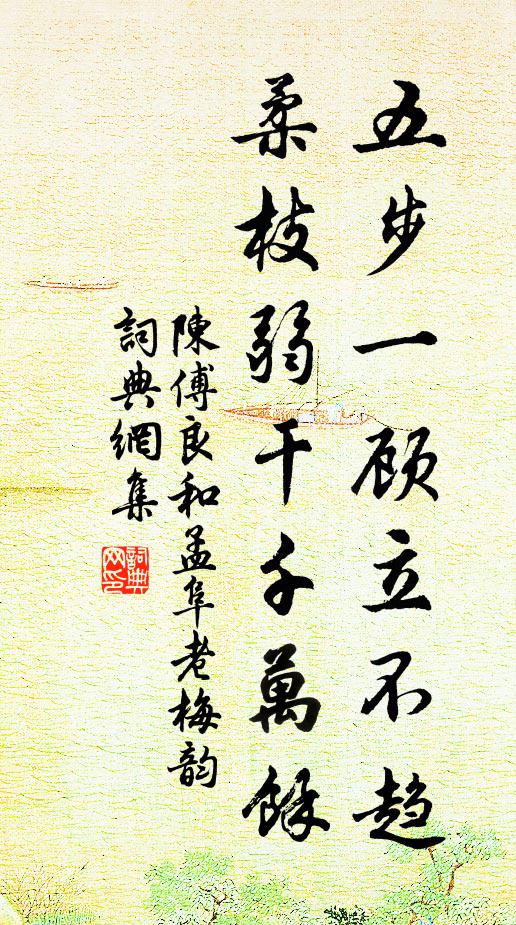 五步一顾立不趋
柔枝弱干千萬餘
陳傅良和孟阜老梅韵
詞典網集
詞典网印